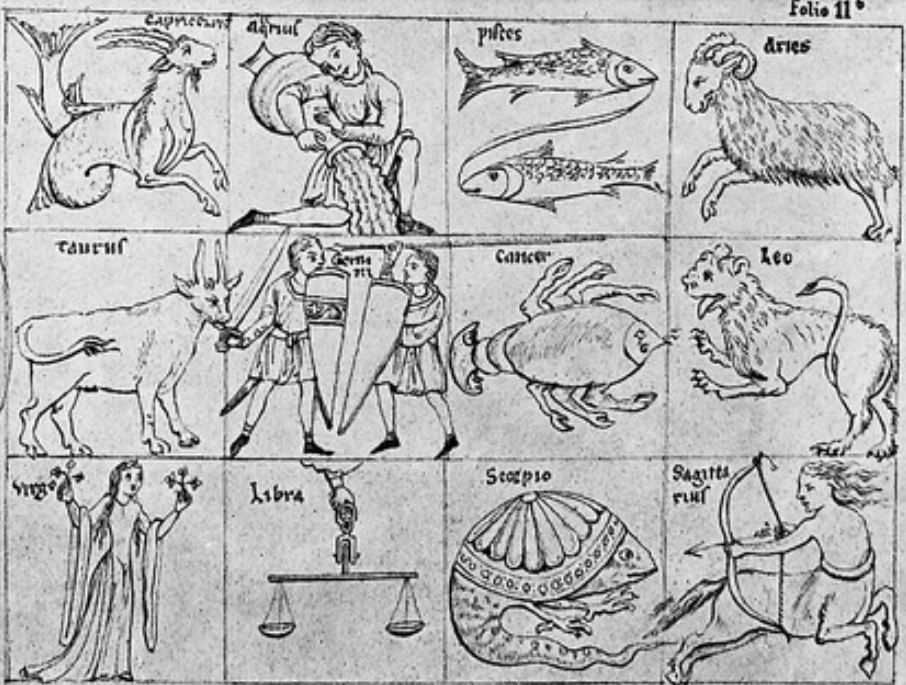 Folio 11b
Capricornus
aqrius
pisces
Aries
Taurus
Gemi
ni
Cancer
Leo
Virgo
Libra
Scorpio
Sagitta
rius